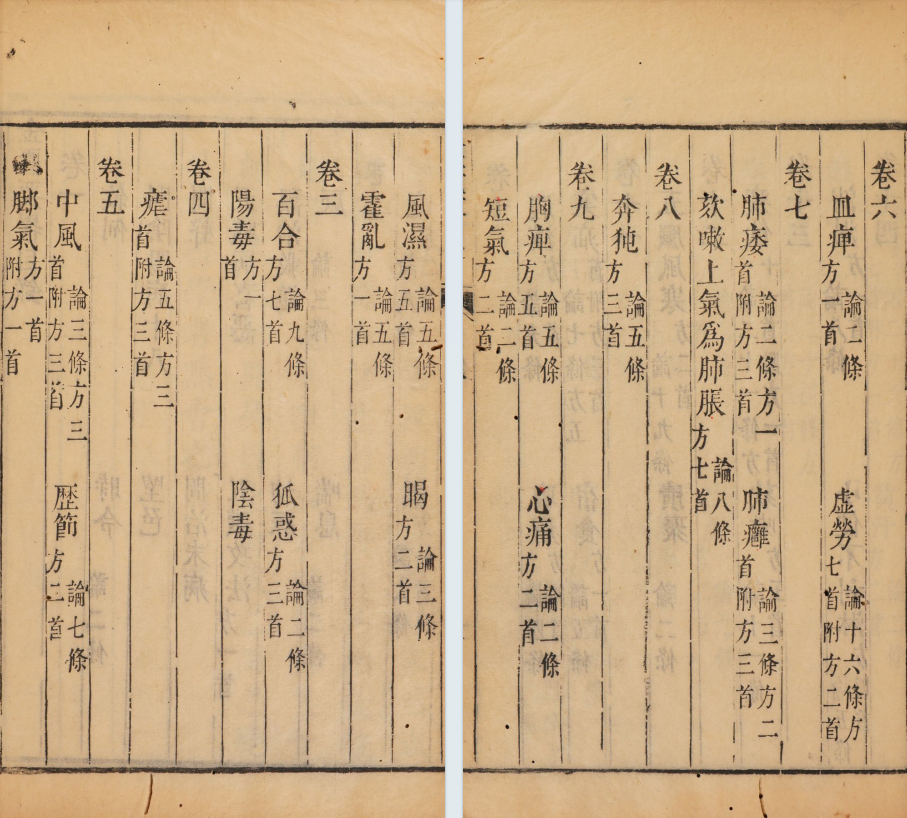 風濕 論五條方五首 暍 論三條方二首
霍亂 論五條方一首
卷三
百合 論九條方七首 狐惑 論二條方三首
陽毒 方一首 陰毒
卷四
瘧 論五條方三首附方三首
卷五
中風 論三條方三首附方三首 歷節 論七條方二首
脚氣 方一首附方一首
卷六
血痺 論二條方一首 虛勞 論十六條方七首附方二首
卷七
肺痿 論二條方一首附方三首 肺癰 論三條方二首附方三首
欬嗽上氣爲肺脹 論八條方七首
卷八
奔㹠 論五條方三首
卷九
胸痺 論五條方五首 心痛 論二條方二首
短氣 論二條方二首